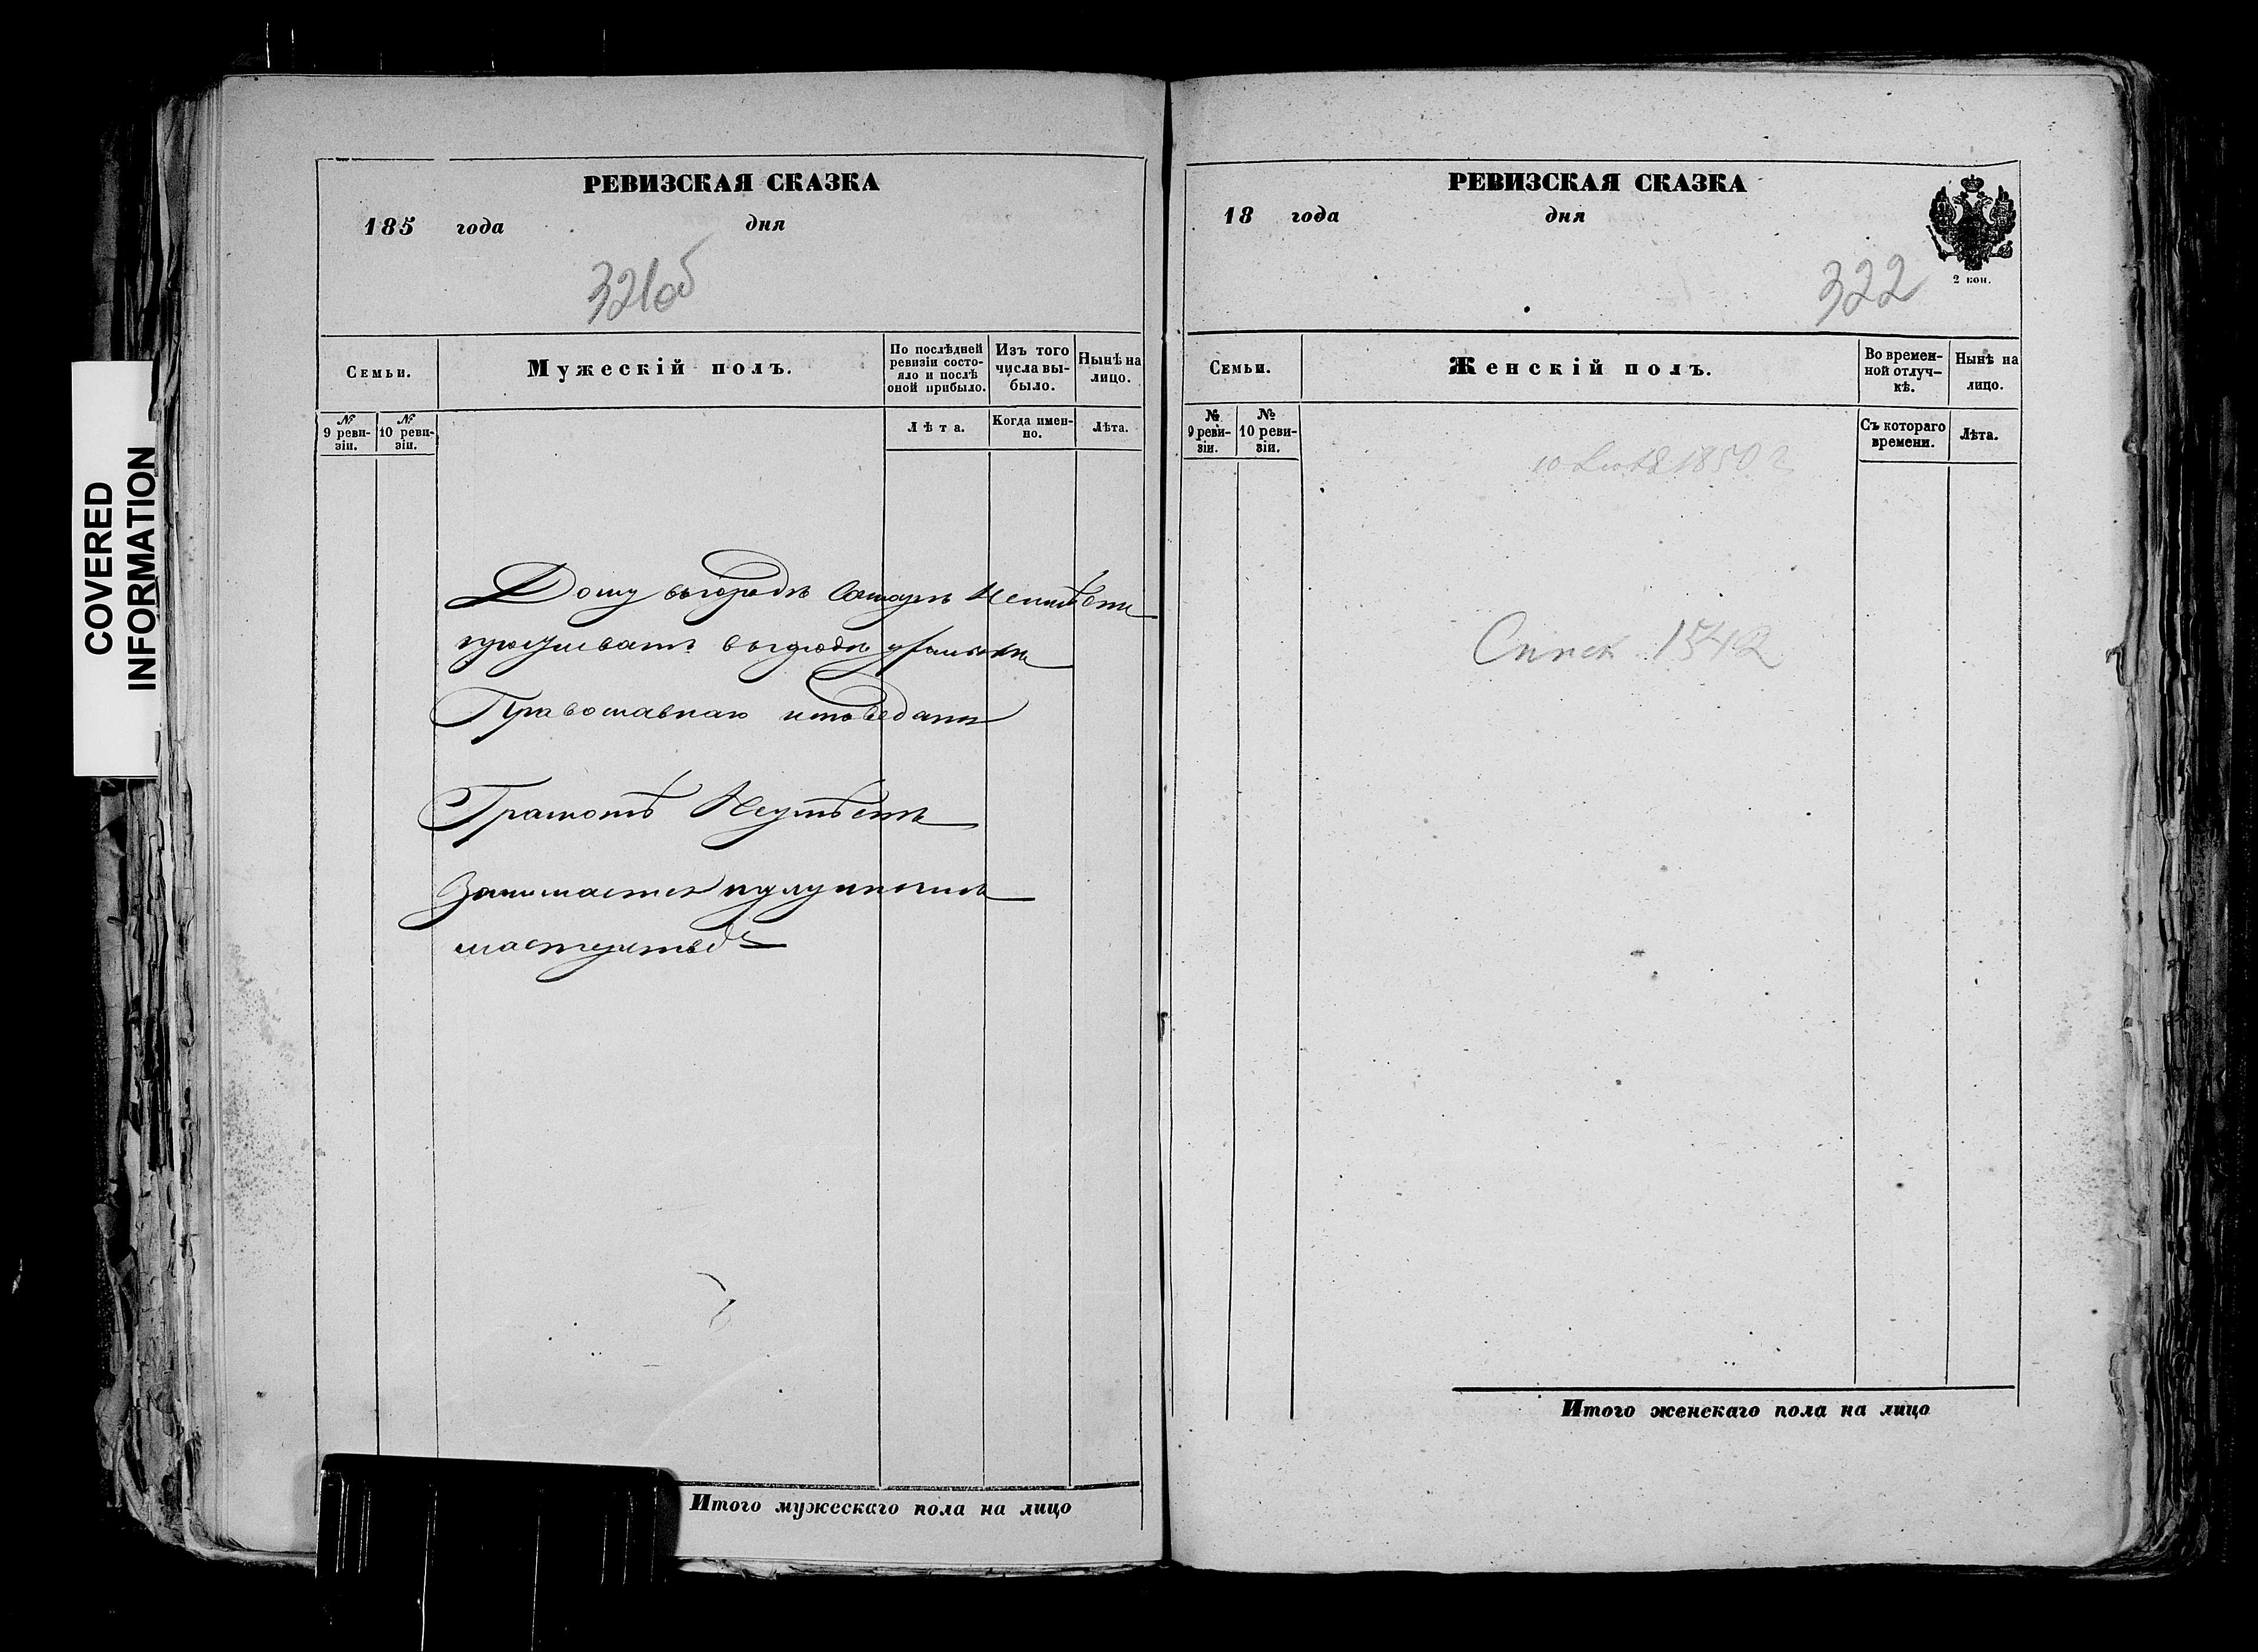 COVERED
INFORMATION
РЕВИЗСКАЯ СКАЗКА
185 года дня
321об
Семьи.
Мужескій полъ.
По послѣдней ревизіи состояло и послѣ оной прибыло.
Изъ того числа выбыло.
Нынѣ на лицо.
№ 9 ревизіи.
№ 10 ревизіи.
Лѣта.
Когда именно.
Лѣта.
Дому въ городѣ Самарѣ Неимѣетъ
проживаетъ въ городѣ
Православнаго исповѣданія
Грамотѣ Неумѣетъ
Занимается
мастерствомъ
Итого мужескаго пола на лицо
РЕВИЗСКАЯ СКАЗКА
18 года дня
2 коп.
322
Семьи.
Женскій полъ.
Во временной отлучкѣ.
Нынѣ на лицо.
№ 9 ревизіи.
№ 10 ревизіи.
Съ котораго времени.
Лѣта.
1850 г
1542
Итого женскаго пола на лицо